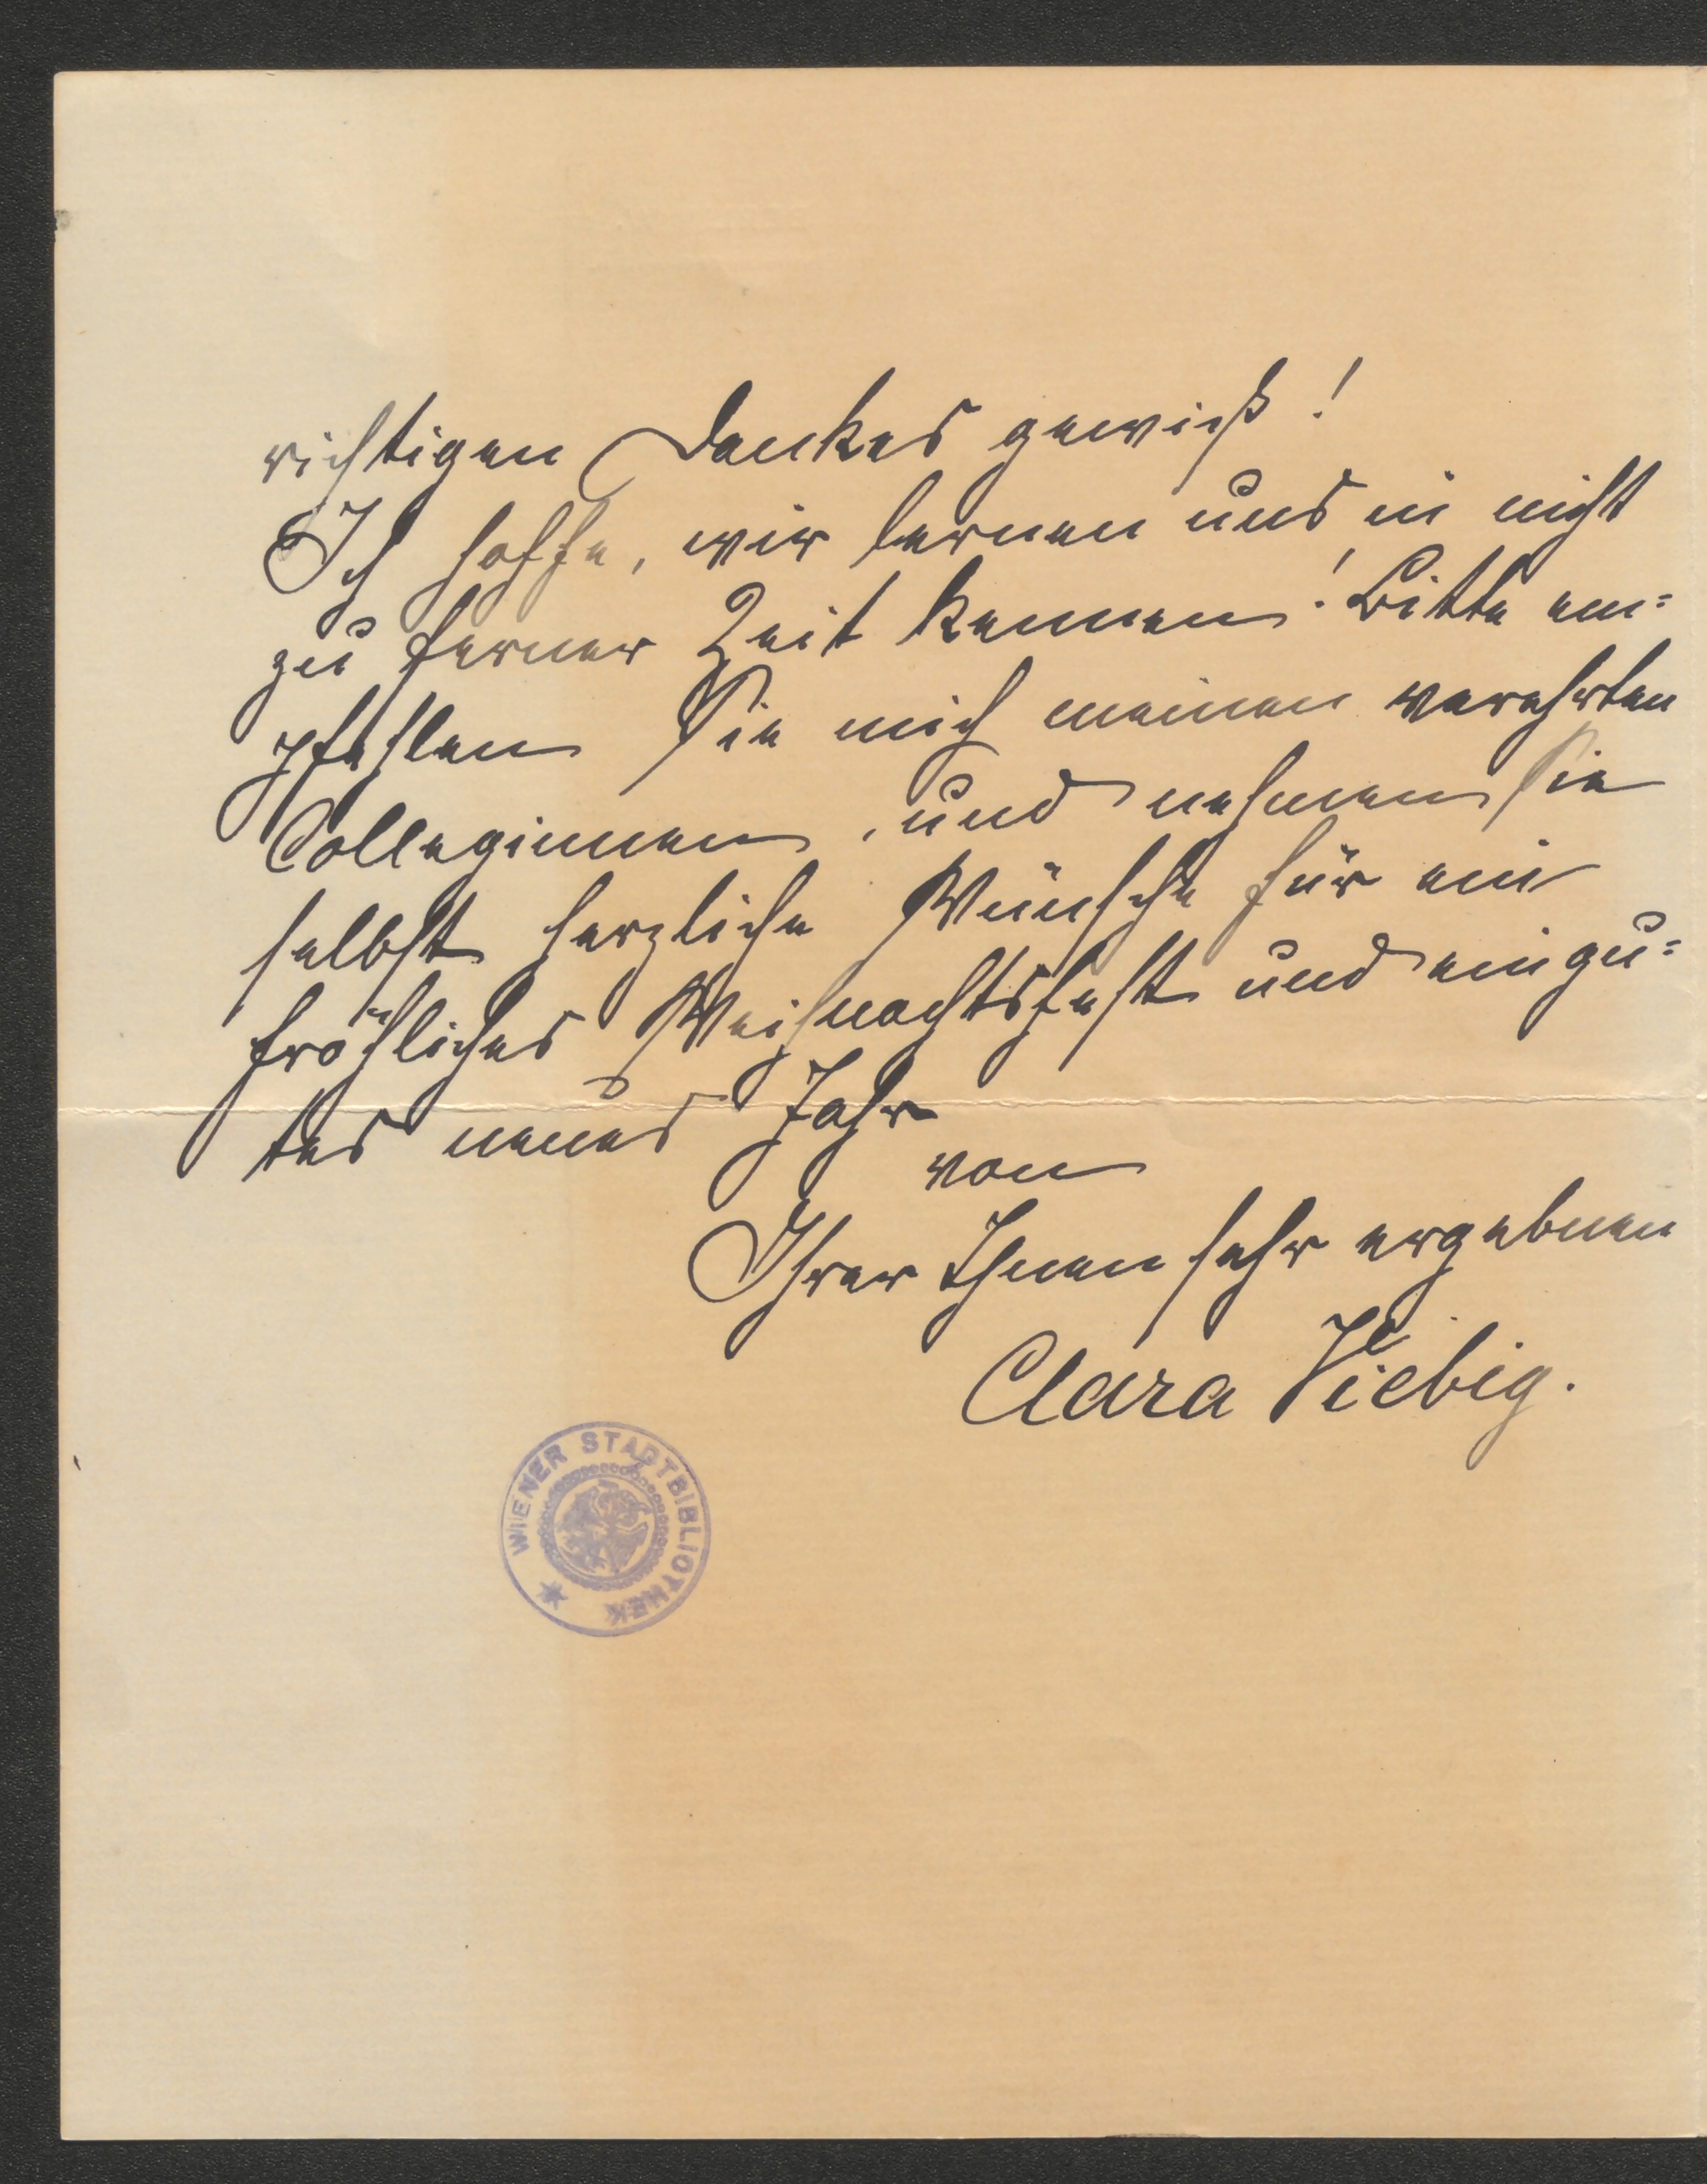 richtigen Dankes gewiß!
Ich hoffe, wir lernen uns in nicht
zu ferner Zeit kennen! Bitte em=
pfehlen Sie mich meinen verehrten
Colleginnen, und nehmen Sie
selbst herzliche Wünsche für ein
fröhliches Weihnachtsfest und ein gu=
tes neues Jahr
von
Ihrer Ihnen sehr ergebnen
Clara Viebig.
WIENER STADTBIBLIOTHEK